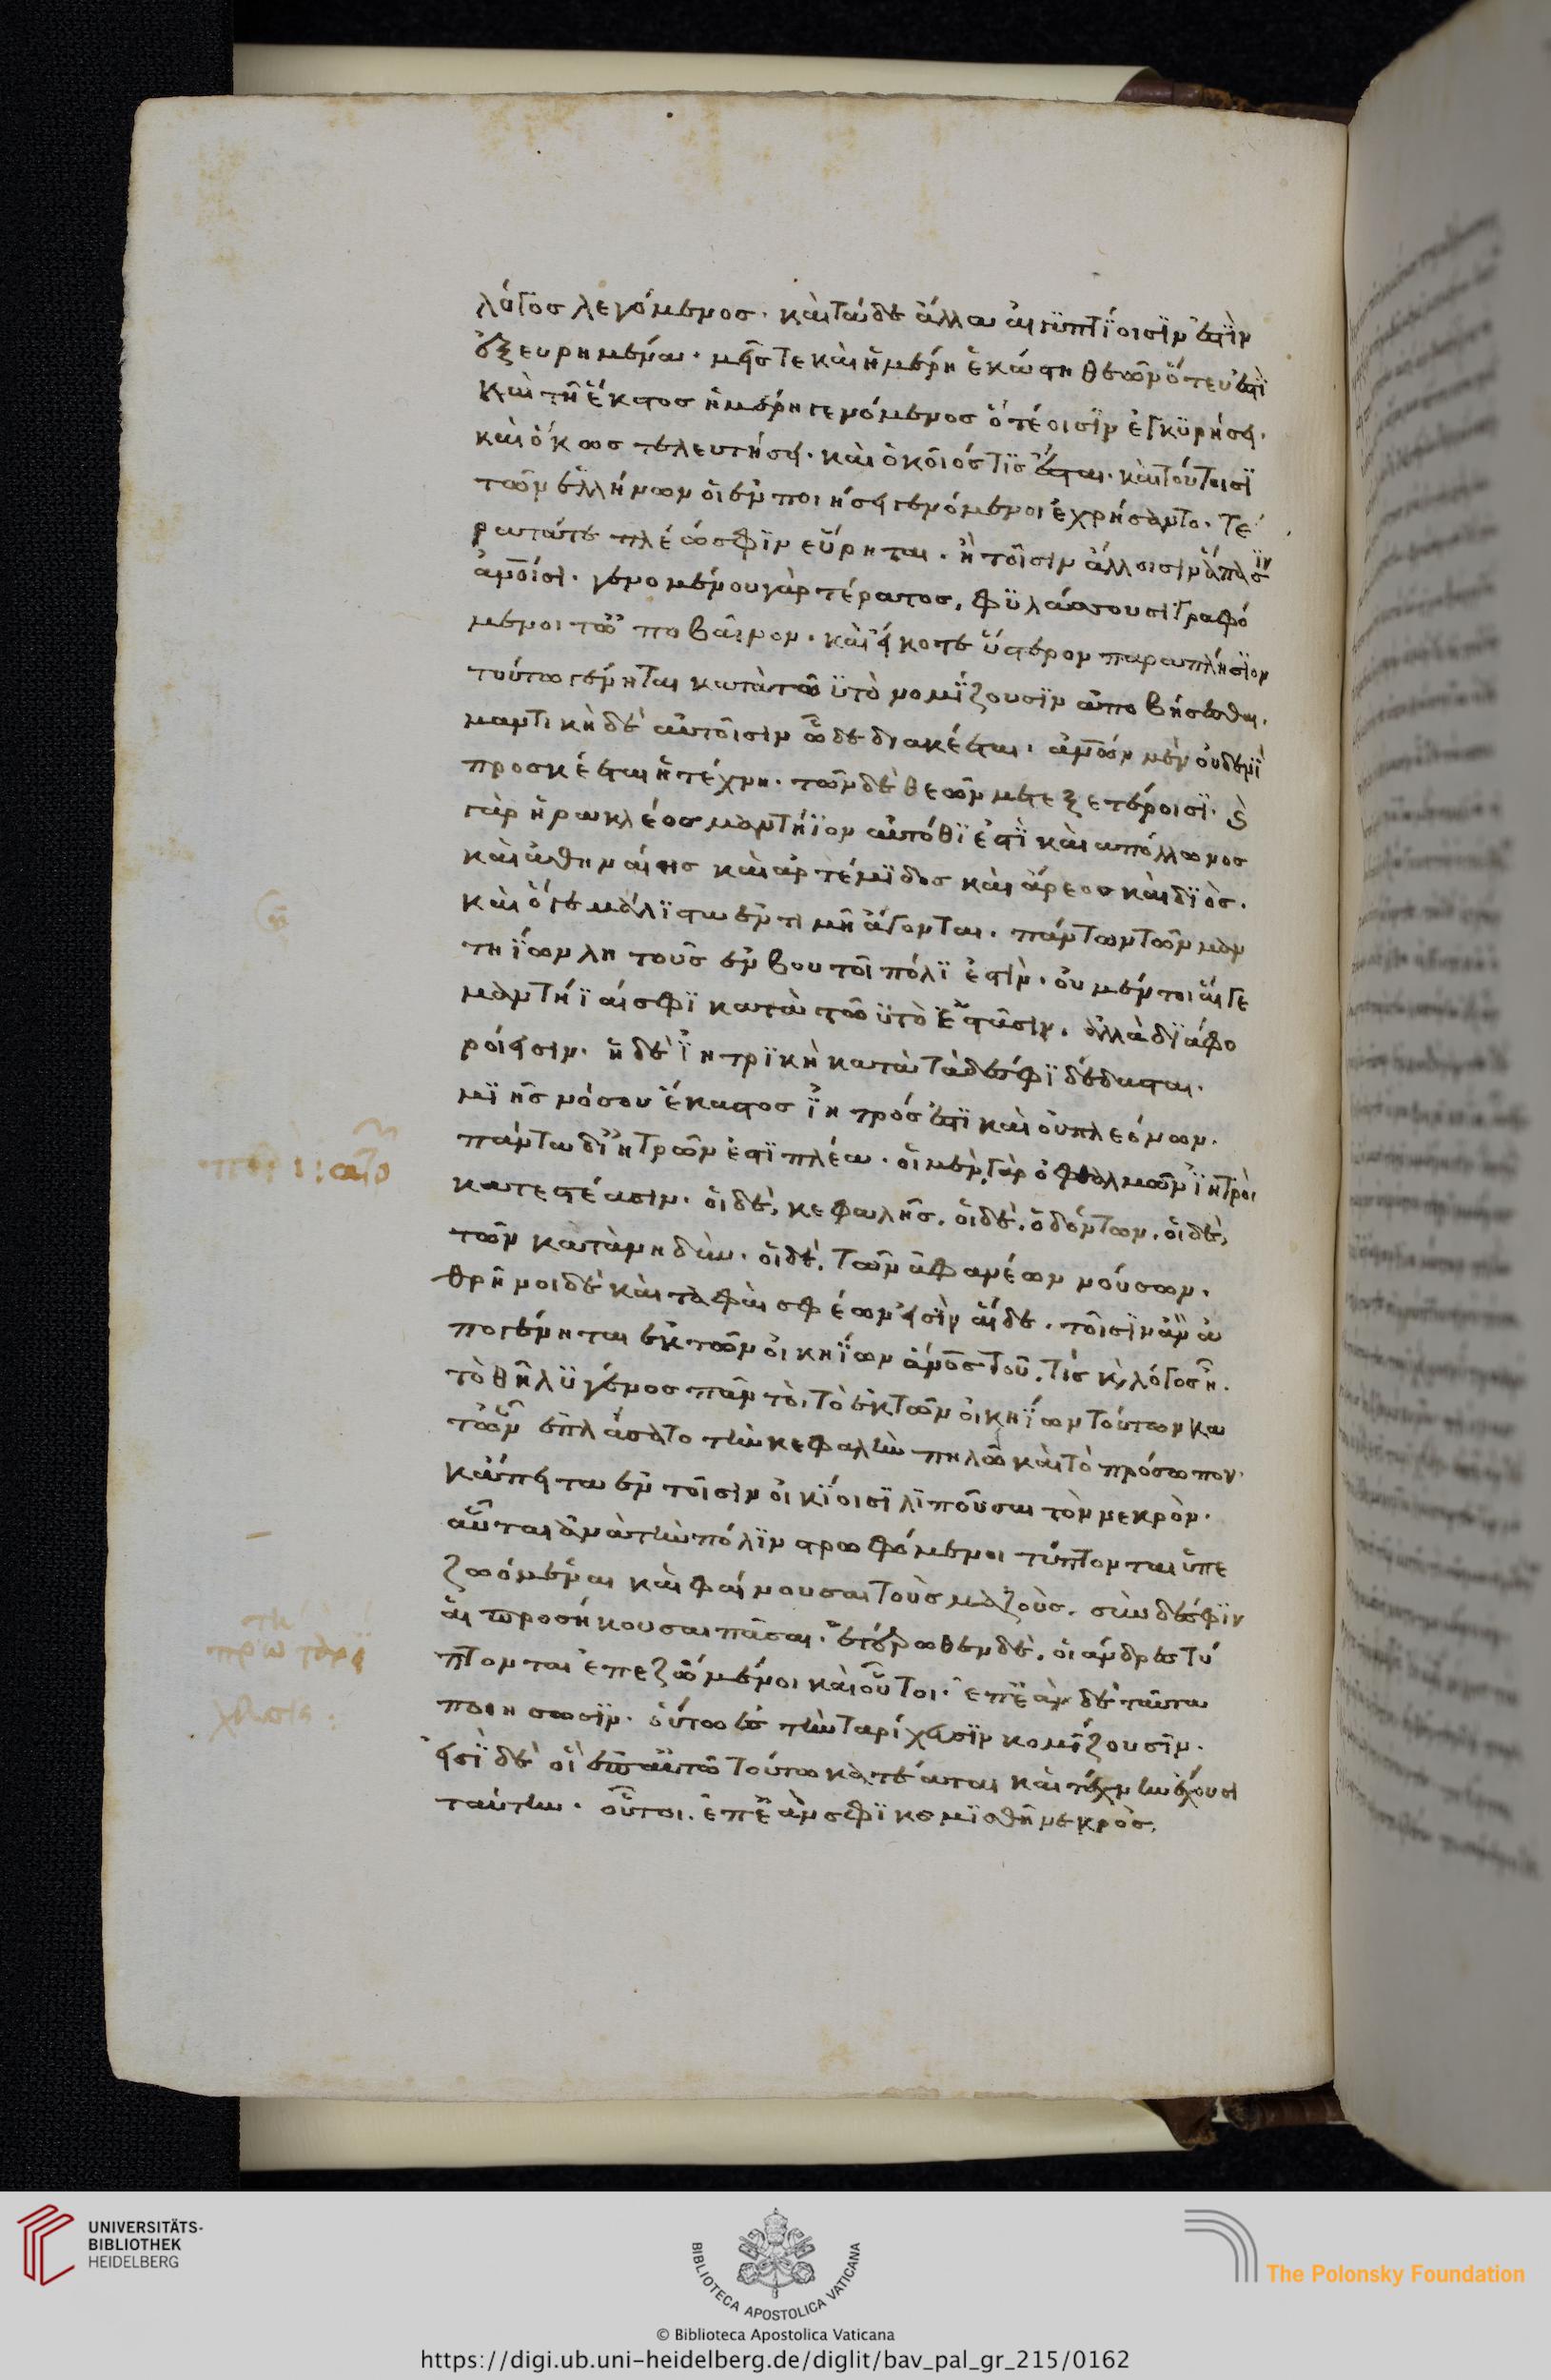 λόγος λεγόμενος. καὶ τάδε ἄλλα αἰγυπτίοισίν ἐστιν
ἐξευρημένα. μείς τε καὶ ἡμέρη ἑκάστη θεῶν ὅτευ ἐστὶ
καὶ τῆ ἕκαστος ἡμέρη γενόμενος ὁτέοισιν ἐγκυρήσει.
καὶ ὅκως τελευτήσει. καὶ ὁκοῖός τις ἔσται. καὶ τούτοισι
τῶν ἑλλήνων οἱ ἐν ποιήσει γενόμενοι ἐχρήσαντο. τέ
ρατά τε πλέω σφιν εὕρηται. ἢ τοῖσιν ἄλλοισιν ἅπασιν
ἀνοῖσι. γενομένου γὰρ τέρατος, φυλάσσουσι γραφό
μενοι τὠποβαῖνον. καὶ ἤν κοτε ὕστερον παραπλήσιον
τούτω γένηται κατὰ τὠυτὸ νομίζουσιν ἀποβήσεσθαι.
μαντικὴ δὲ αὐτοῖσιν ὧδε διακέεται. ἀνῶν μὲν οὐδενὶ
προσκέεται ἡ τέχνη. τῶν δὲ θεῶν μετεξετέροισι.
γὰρ ἡρακλέος μαντήϊον αὐτόθι ἐστὶ καὶ ἀπόλλωνος
καὶ ἀθηναίης καὶ ἀρτέμιδος καὶ ἄρεος καὶ διὸς.
καὶ ὅ γε μάλιστα ἐν τιμῆ ἄγονται. πάντων τῶν μαν
τηΐων λητοῦς ἐν βουτοῖ πόλι ἐστὶν. οὐ μέντοι αἵ γε
μαντήϊαί σφι κατὰ τὠυτὸ ἑστᾶσιν. ἀλλὰ διάφο
ροί εἰσιν. ἡ δὲ ἰητρικὴ κατὰ τάδε σφι δέδασται.
μιῆς νόσου ἕκαστος ἰητρός ἐστι καὶ οὐ πλεόνων.
πάντα δ' ἰητρῶν ἐστι πλέα. οἱ μὲν γὰρ ὀφθαλμῶν ἰητροὶ
κατεστέασιν. οἱ δὲ, κεφαλῆς. οἱ δὲ. ὀδόντων. οἱ δὲ,
τῶν κατὰ νηδὺν. οἱ δὲ. τῶν ἀφανέων νούσων.
θρῆνοι δὲ καὶ ταφαί σφέων εἰσὶν αἵδε. τοῖσιν ἂν ἀ
πογένηται ἐκ τῶν οἰκηΐων ἀνος τοῦ. τίς καὶ λόγος ἦ.
τὸ θῆλυ γένος πᾶν τὸ. τὸ ἐκ τῶν οἰκηΐων τούτων κα
τῶν ἐπλάσατο τὴν κεφαλὴν πηλῶ καὶ τὸ πρόσωπον.
κἄπειτα ἐν τοῖσιν οἰκίοισι λιποῦσαι τὸν νεκρὸν.
αὗται ἀνὰ τὴν πόλιν στρωφόμενοι τύπτονται ἐπε
ζωόμεναι καὶ φαίνουσαι τοὺς μαζοὺς. σὺν δέ σφιν
αἱ προσήκουσαι πᾶσαι. ἑτέρωθεν δὲ. οἱ ἄνδρες τύ
πτονται ἐπεζωόμενοι καὶ οὗτοι. ἐπεὰν δὲ ταῦτα
ποιήσωσιν. οὕτω ἐς τὴν ταρίχευσιν κομίζουσιν.
εἰσὶ δὲ οἳ ἐπ' αὐτῶ τούτω κατέαται καὶ τέχνην ἔχουσι
ταύτην. οὗτοι. ἐπεάν σφι κομισθῆ νεκρὸς.
UNIVERSITÄTS-
BIBLIOTHEK
HEIDELBERG
BIBLIOTECA APOSTOLICA VATICANA
The Polonsky Foundation
© Biblioteca Apostolica Vaticana
https://digi.ub.uni-heidelberg.de/diglit/bav_pal_gr_215/0162